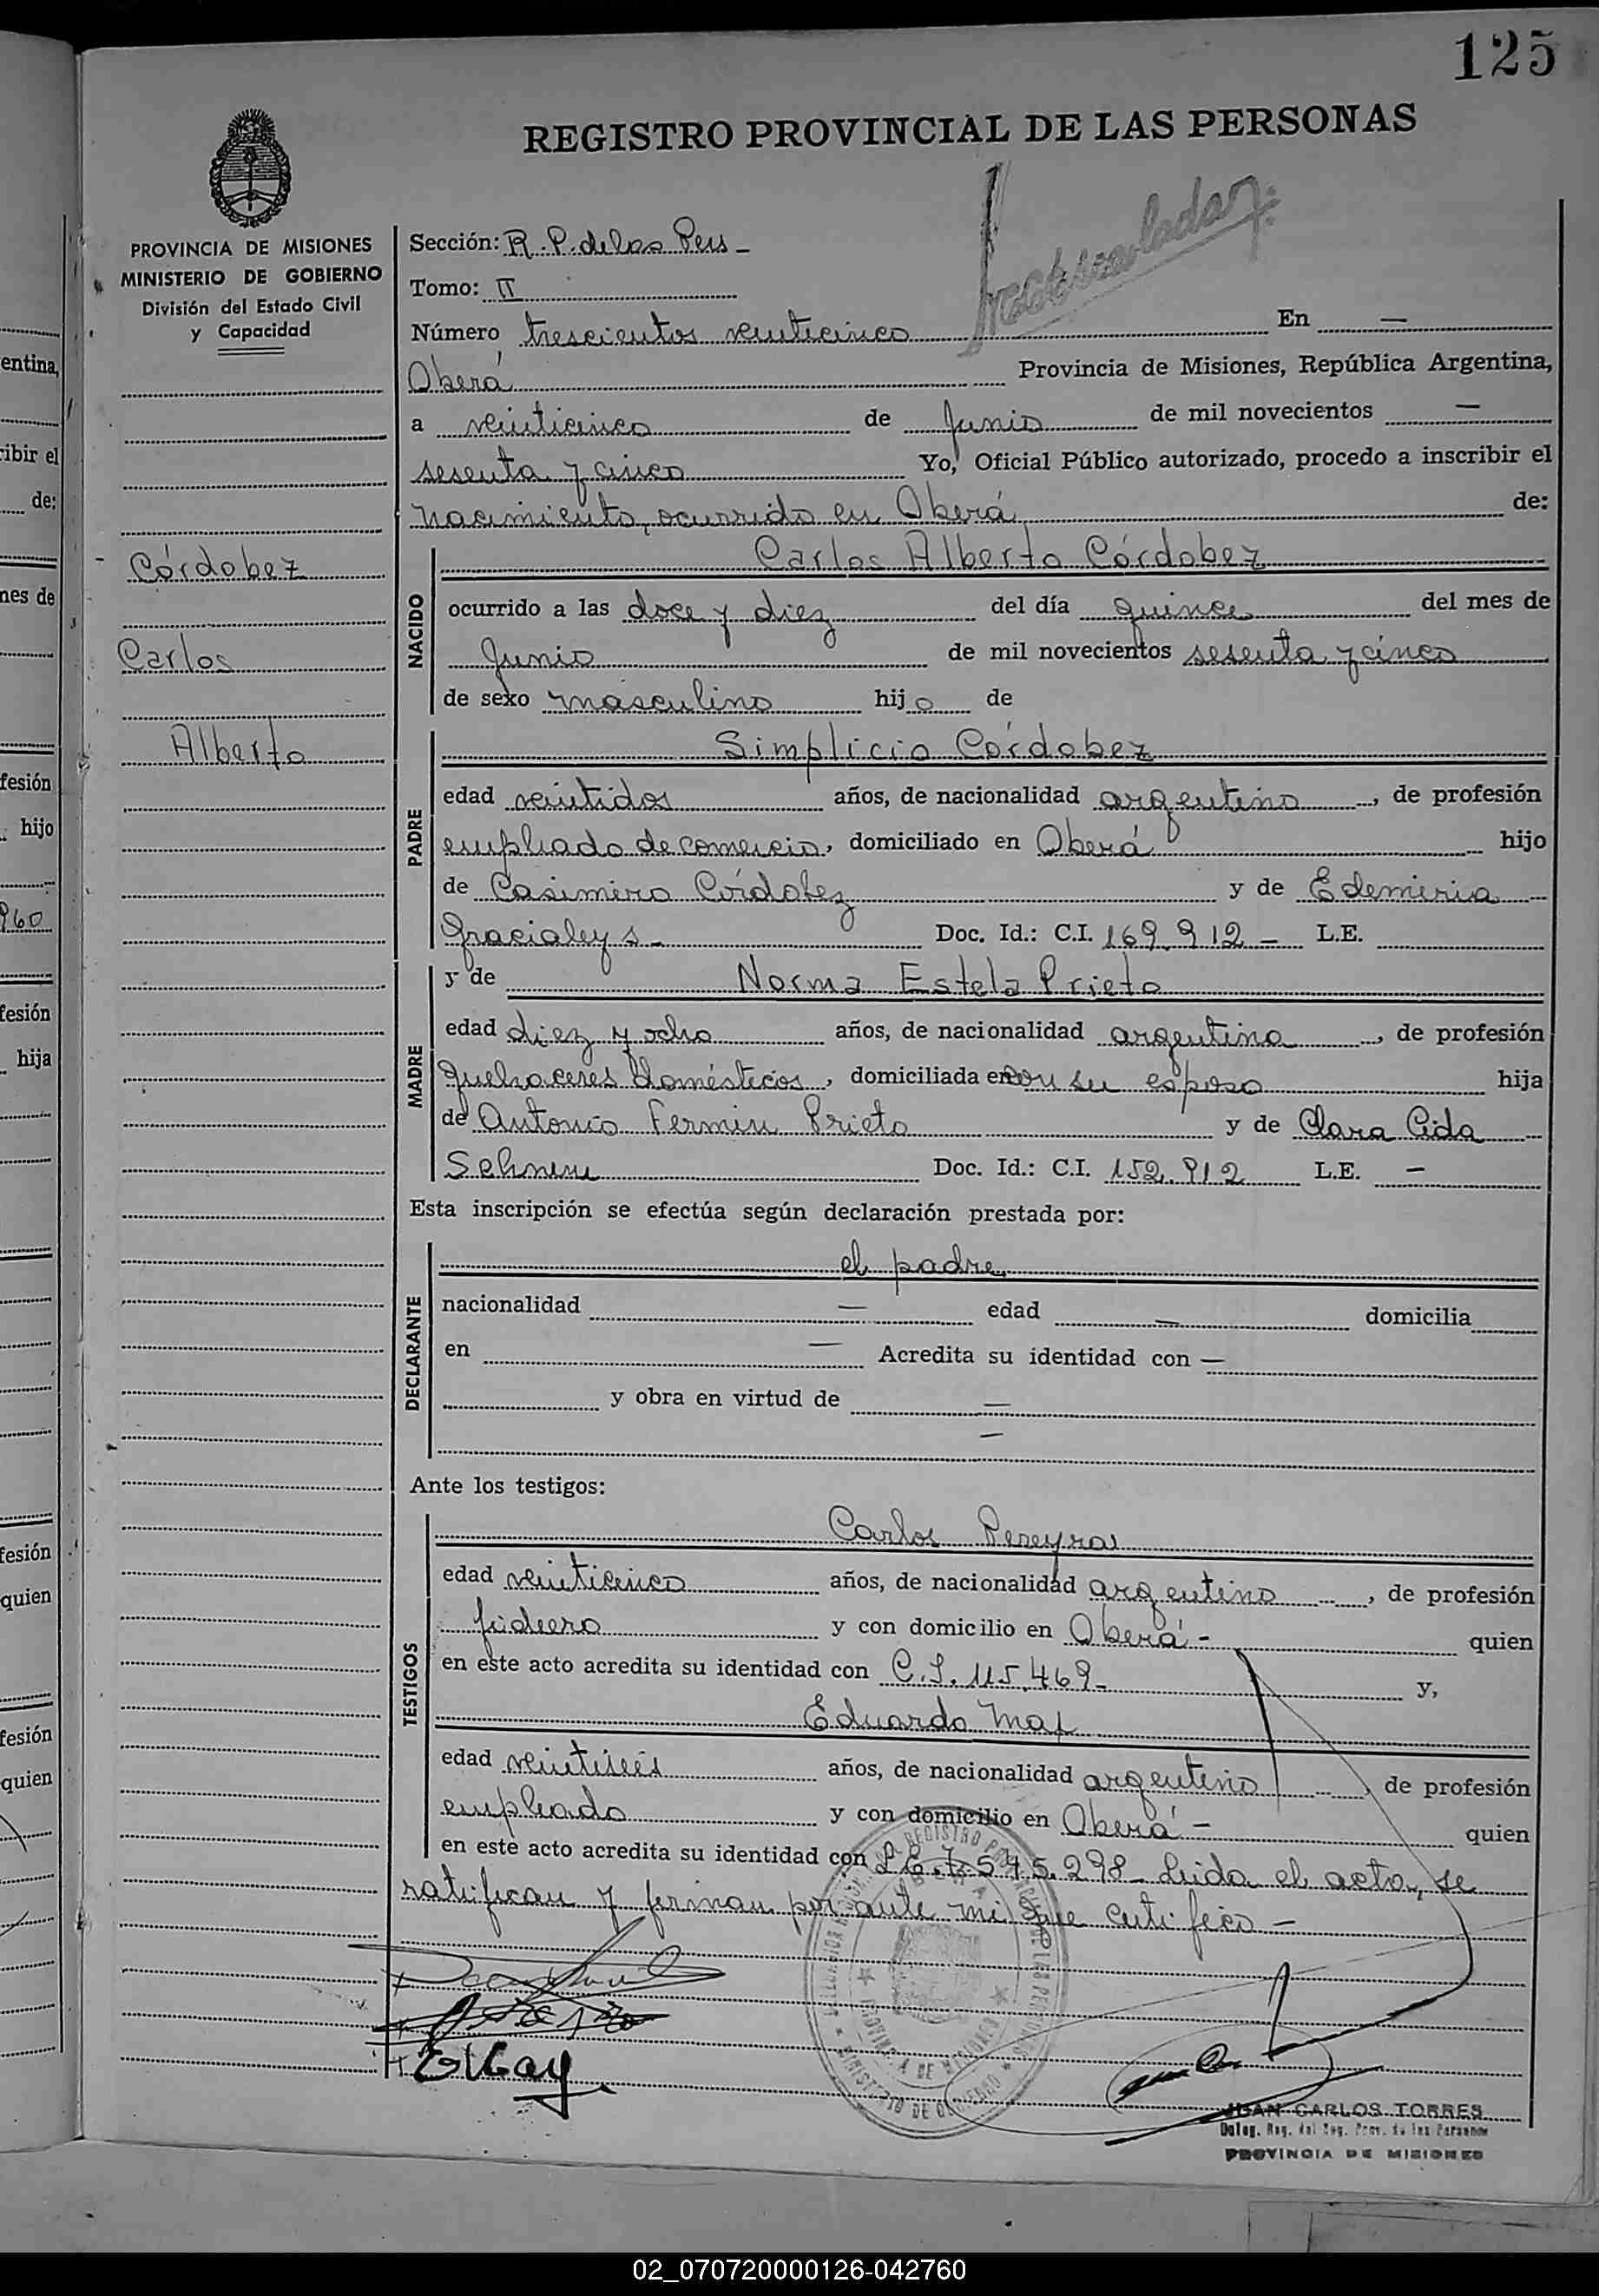 125
REGISTRO PROVINCIAL DE LAS PERSONAS
PROVINCIA DE MISIONES
MINISTERIO DE GOBIERNO
División del Estado Civil
y Capacidad
Sección: R. P. de las Pers -
Tomo: II
Número trescientos veinticinco En —
Oberá Provincia de Misiones, República Argentina,
a veinticinco de Junio de mil novecientos —
sesenta y cinco Yo, Oficial Público autorizado, procedo a inscribir el
nacimiento, ocurrido en Oberá de:
Córdobez
Carlos
Alberto
NACIDO
Carlos Alberto Córdobez
ocurrido a las doce y diez del día quince del mes de
Junio de mil novecientos sesenta y cinco
de sexo masculino hijo de
PADRE
Simplicio Córdobez
edad veintidos años, de nacionalidad argentino, de profesión
empleado de comercio, domiciliado en Oberá hijo
de Casimiro Córdobez y de
Doc. Id.: C.I. 169.912 - L.E.
MADRE
y de Norma Estela Prieto
edad diez y ocho años, de nacionalidad argentina, de profesión
quehaceres domésticos, domiciliada en con su esposo hija
de Antonio Fermin Prieto y de Clara
Doc. Id.: C.I. 152.912 L.E. —
Esta inscripción se efectúa según declaración prestada por:
DECLARANTE
el padre
nacionalidad — edad — domicilia
en — Acredita su identidad con —
y obra en virtud de —
—
Ante los testigos:
TESTIGOS
Carlos Pereyra
edad veinticinco años, de nacionalidad argentino, de profesión
y con domicilio en Oberá - quien
en este acto acredita su identidad con C.I. 115.469- y,
Eduardo
edad veintiseis años, de nacionalidad argentino, de profesión
empleado y con domicilio en Oberá - quien
en este acto acredita su identidad con L.E. 7.545.298- Leida el acta, se
ratifican y firman por ante mi que certifico -
JUAN CARLOS TORRES
PROVINCIA DE MISIONES
entina,
ribir el
de:
mes de
fesión
hijo
960
fesión
hija
fesión
quien
fesión
quien
02_070720000126-042760